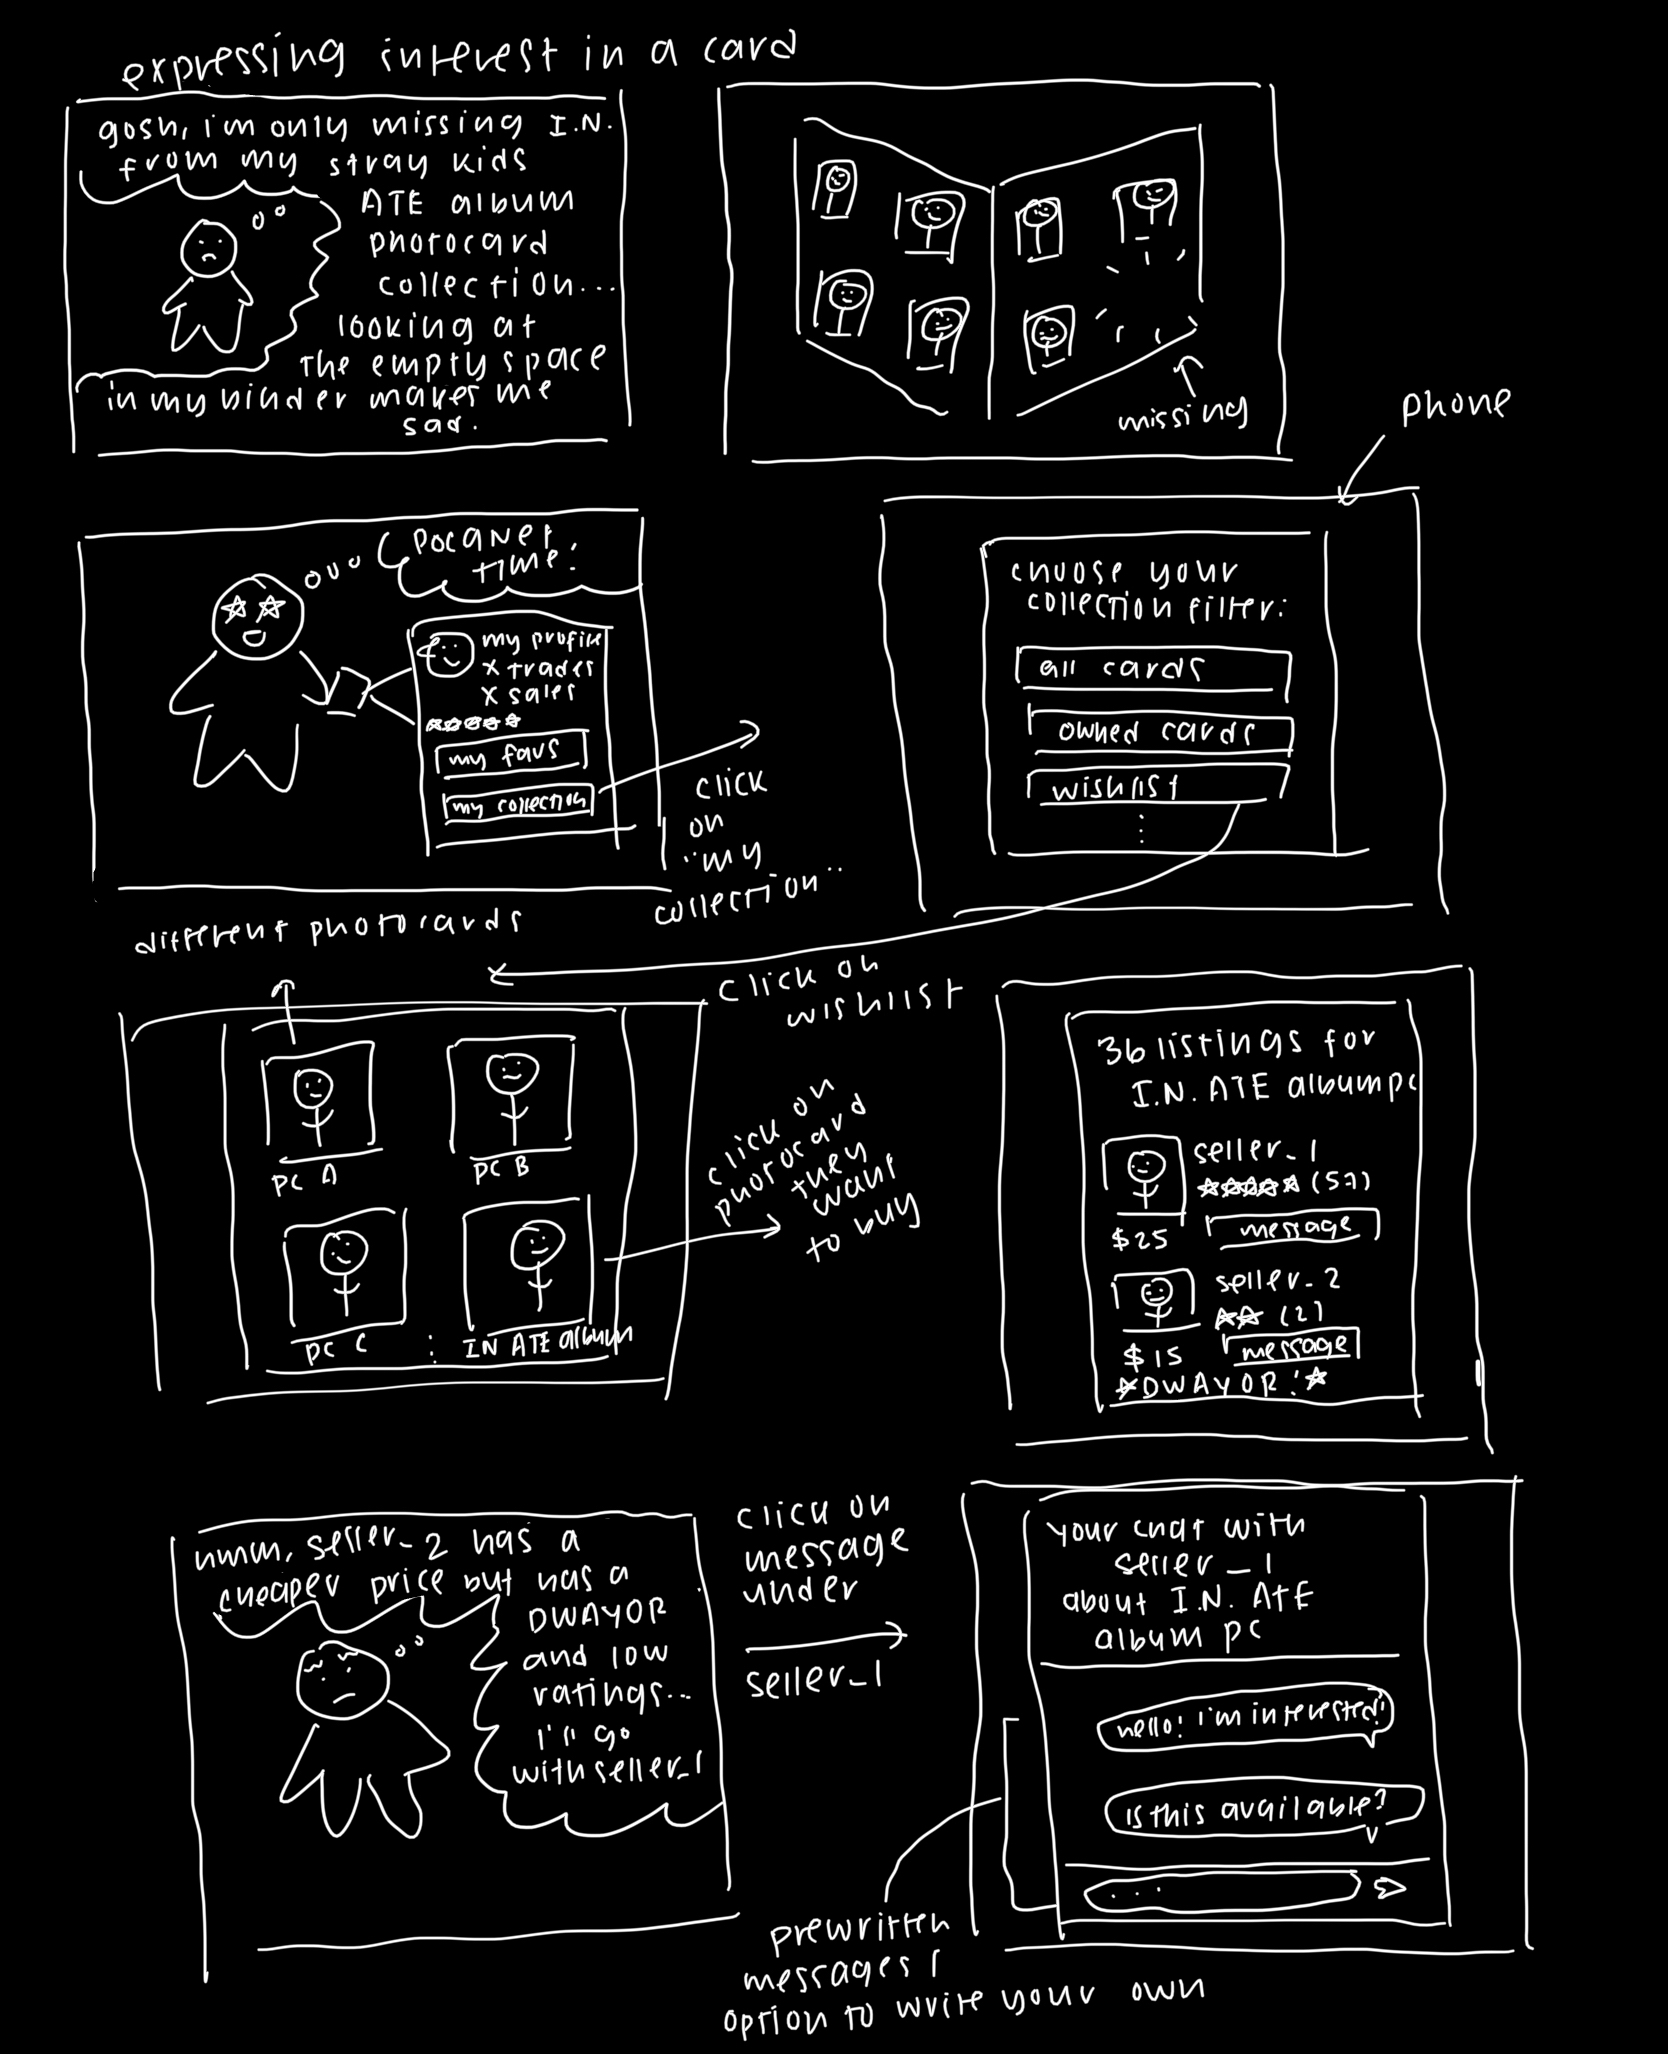 expressing interest in a card
gosh, i'm only missing I.N.
from my stray kids
ATE album
photocard
collection...
looking at
the empty space
in my binder makes me
sad.
missing
phone
POCANET
TIME!
my profile
x trades
x sales
my favs
my collection
click
on
"my
collection"
choose your
collection filter:
all cards
owned cards
wishlist
click on
wishlist
different photocards
PC A
PC B
PC C
IN ATE album
click on
photocard
they
want
to buy
36 listings for
I.N. ATE album pc
seller_1
(57)
$25
message
seller_2
(2)
$15
message
DWAYOR!
hmm, seller_2 has a
cheaper price but has a
DWAYOR
and low
ratings...
i'll go
with seller_1
click on
message
under
seller_1
your chat with
seller_1
about I.N. ATE
album pc
hello! i'm interested!
is this available?
...
prewritten
messages /
option to write your own